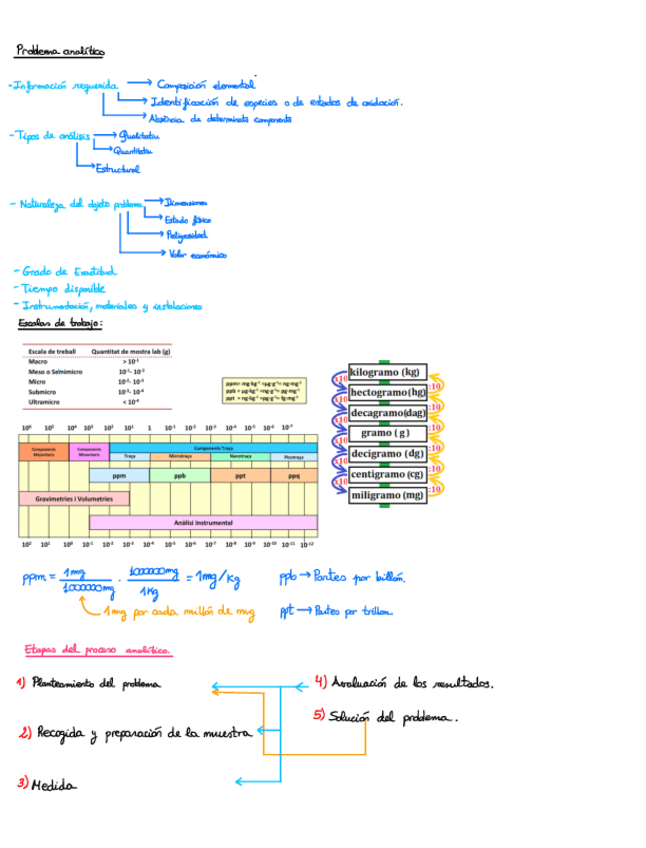 Problema analítico
-Información requerida → Composición elemental
→ Identificación de especies o de estados de oxidación.
→ Ausencia de determinats components
-Tipos de análisis → Qualitatiu
→ Quantitatiu
→ Estructural
- Naturaleza del objeto problema → Dimensiones
→ Estado físico
→ Peligrosidad
→ Valor económico
- Grado de Exactitud
- Tiempo disponible
- Instrumentación, materiales y instalaciones
Escalas de trabajo:
Escala de treball Quantitat de mostra lab (g)
Macro > 10⁻¹
Meso o Semimicro 10⁻¹- 10⁻²
Micro 10⁻²- 10⁻³
Submicro 10⁻³- 10⁻⁴
Ultramicro < 10⁻⁴
ppm= mg·kg⁻¹ =µg·g⁻¹= ng·mg⁻¹
ppb = µg·kg⁻¹ =ng·g⁻¹= pg·mg⁻¹
ppt = ng·kg⁻¹ =pg·g⁻¹= fg·mg⁻¹
kilogramo (kg)
x10 :10
hectogramo(hg)
x10 :10
decagramo(dag)
x10 :10
gramo ( g )
x10 :10
decigramo (dg)
x10 :10
centigramo (cg)
x10 :10
miligramo (mg)
10³ 10² 10¹ 1 10⁻¹ 10⁻² 10⁻³ 10⁻⁴ 10⁻⁵ 10⁻⁶ 10⁻⁷
Components Majoritaris Components Minoritaris Components Traça
Traça Microtraça Nanotraça Picotraça
ppm ppb ppt ppq
Gravimetries i Volumetries
Anàlisi Instrumental
10² 10¹ 10⁰ 10⁻¹ 10⁻² 10⁻³ 10⁻⁴ 10⁻⁵ 10⁻⁶ 10⁻⁷ 10⁻⁸ 10⁻⁹ 10⁻¹⁰ 10⁻¹¹ 10⁻¹²
ppm = 1mg / 1000000mg · 1000000mg / 1Kg = 1mg/Kg
1mg por cada millón de mg
ppb → Partes por billón.
ppt → Partes por trillon.
Etapas del proceso analítico.
1) Planteamiento del problema
2) Recogida y preparación de la muestra
3) Medida
4) Avaluación de los resultados.
5) Solución del problema.